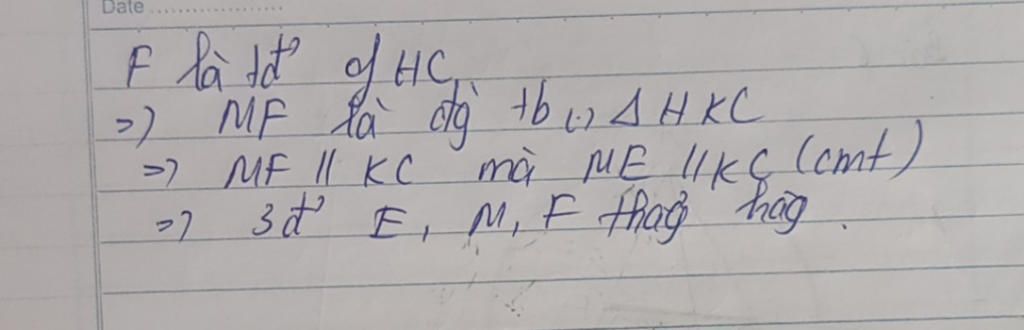 Date
F là tđ' of HC
=> MF là đg̀ tb (·) Δ HKC
=> MF // KC mà ME // KC (cmt)
=> 3 đ' E, M, F thẳg hàg.